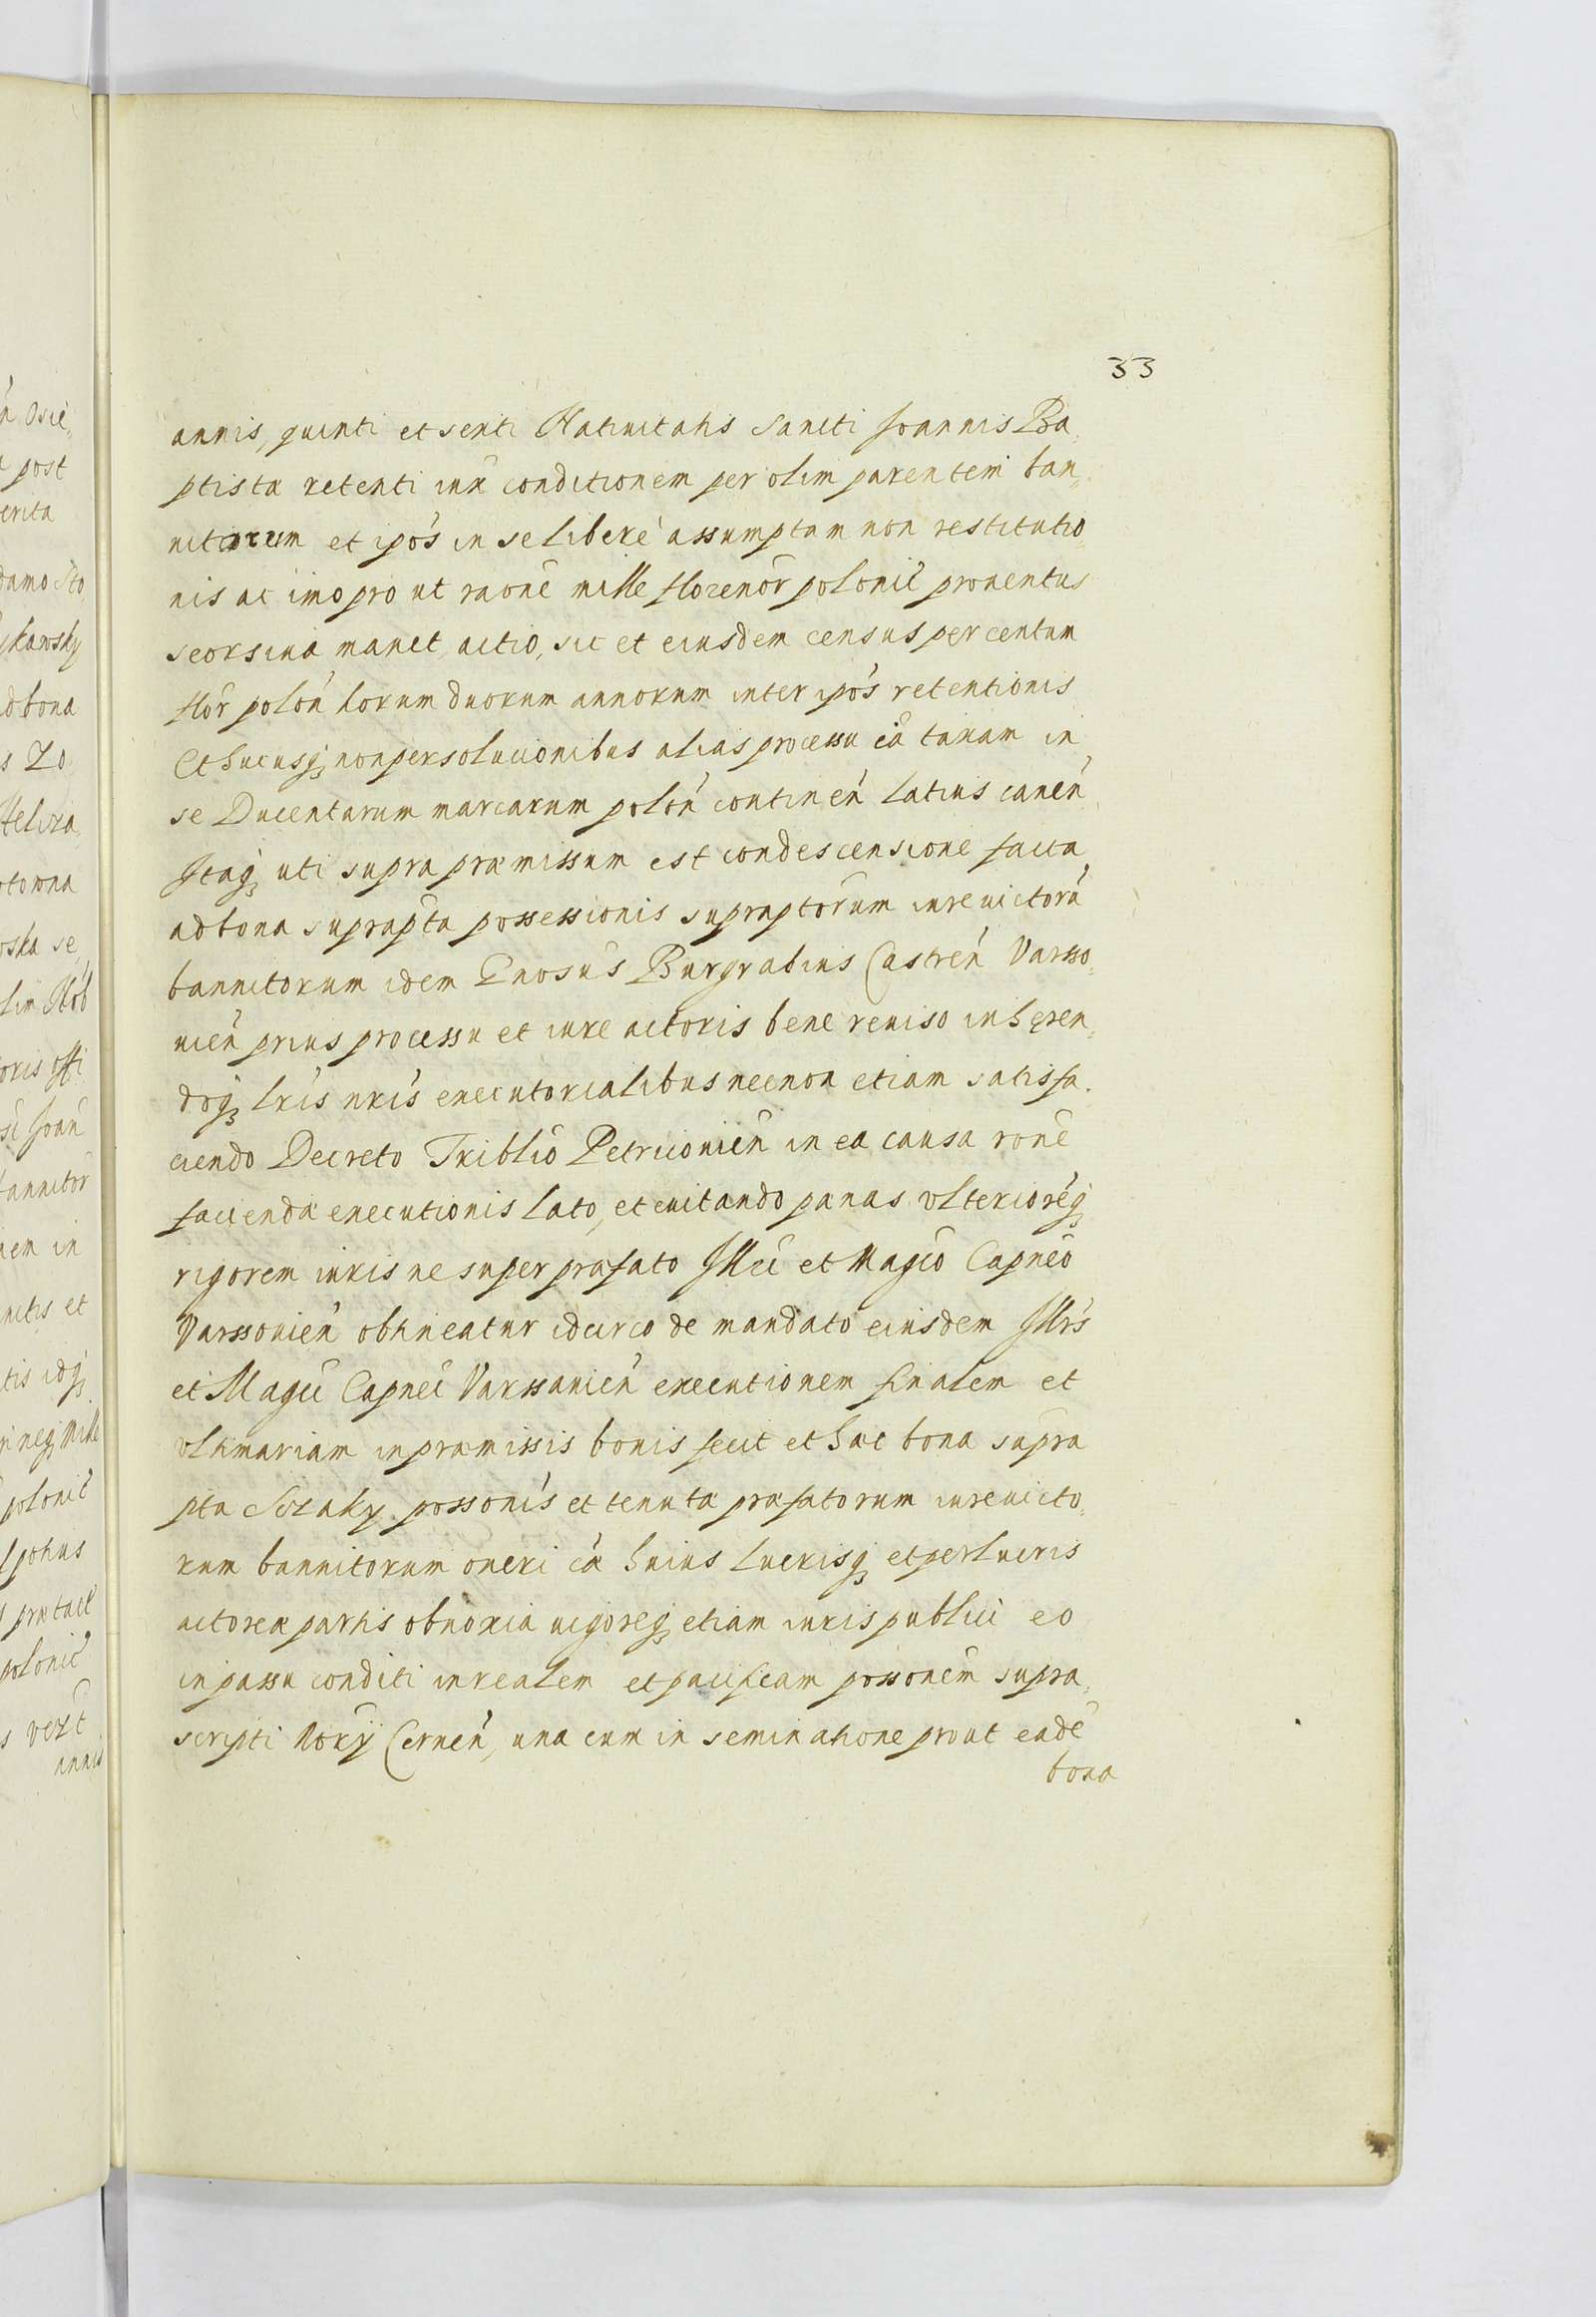 33
annis, quinti et sexti Natiuitatis Sancti Joannis Ba,
ptistæ retenti iuxa conditionem per olim parentem ban,
nitorum et ipos in se liberè assumptam non restitutio,
nis ac imo pro ut raone mille florenor polonic prouentus
seorsiua manet actio, sic et eiusdem census per centum
flor polon horum duorum annorum inter ipos retentionis
et hucusq non persolucionibus alias processu ea
se Ducentarum marcarum polon continen latius canen
Itaq uti supra præmissum est condescensione facta
ad bona suprapta possessionis supraptorum iureuictoru
bannitorum idem Gnosus Burgrabius Castren Varsso,
uien prius processu et iure actoris bene reuiso inhæren,
doq lris nris executorialibus necnon etiam satisfa,
ciendo Decreto Triblio Petricouien in ea causa rone
faciendæ executionis lato, et euitando pænas ulterioreq
rigorem iuris ne super præfato Illri et Magco Capneo
Varssouien obtineatur idcirco de mandato eiusdem Illris
et Magci Capnei Varssauien executionem finalem et
ultimariam in præmissis bonis fecit et hæc bona supra
pta possonis et tenutæ præfatorum iureuicto,
rum bannitorum oneri cæ huius lucrisq et perlucris
actoreæ partis obnoxia uigoreq etiam iuris publici eo
in passu conditi in realem et pacificam possonem supra,
scripti Noxij Cernen, una cum inseminatione prout eade
bona